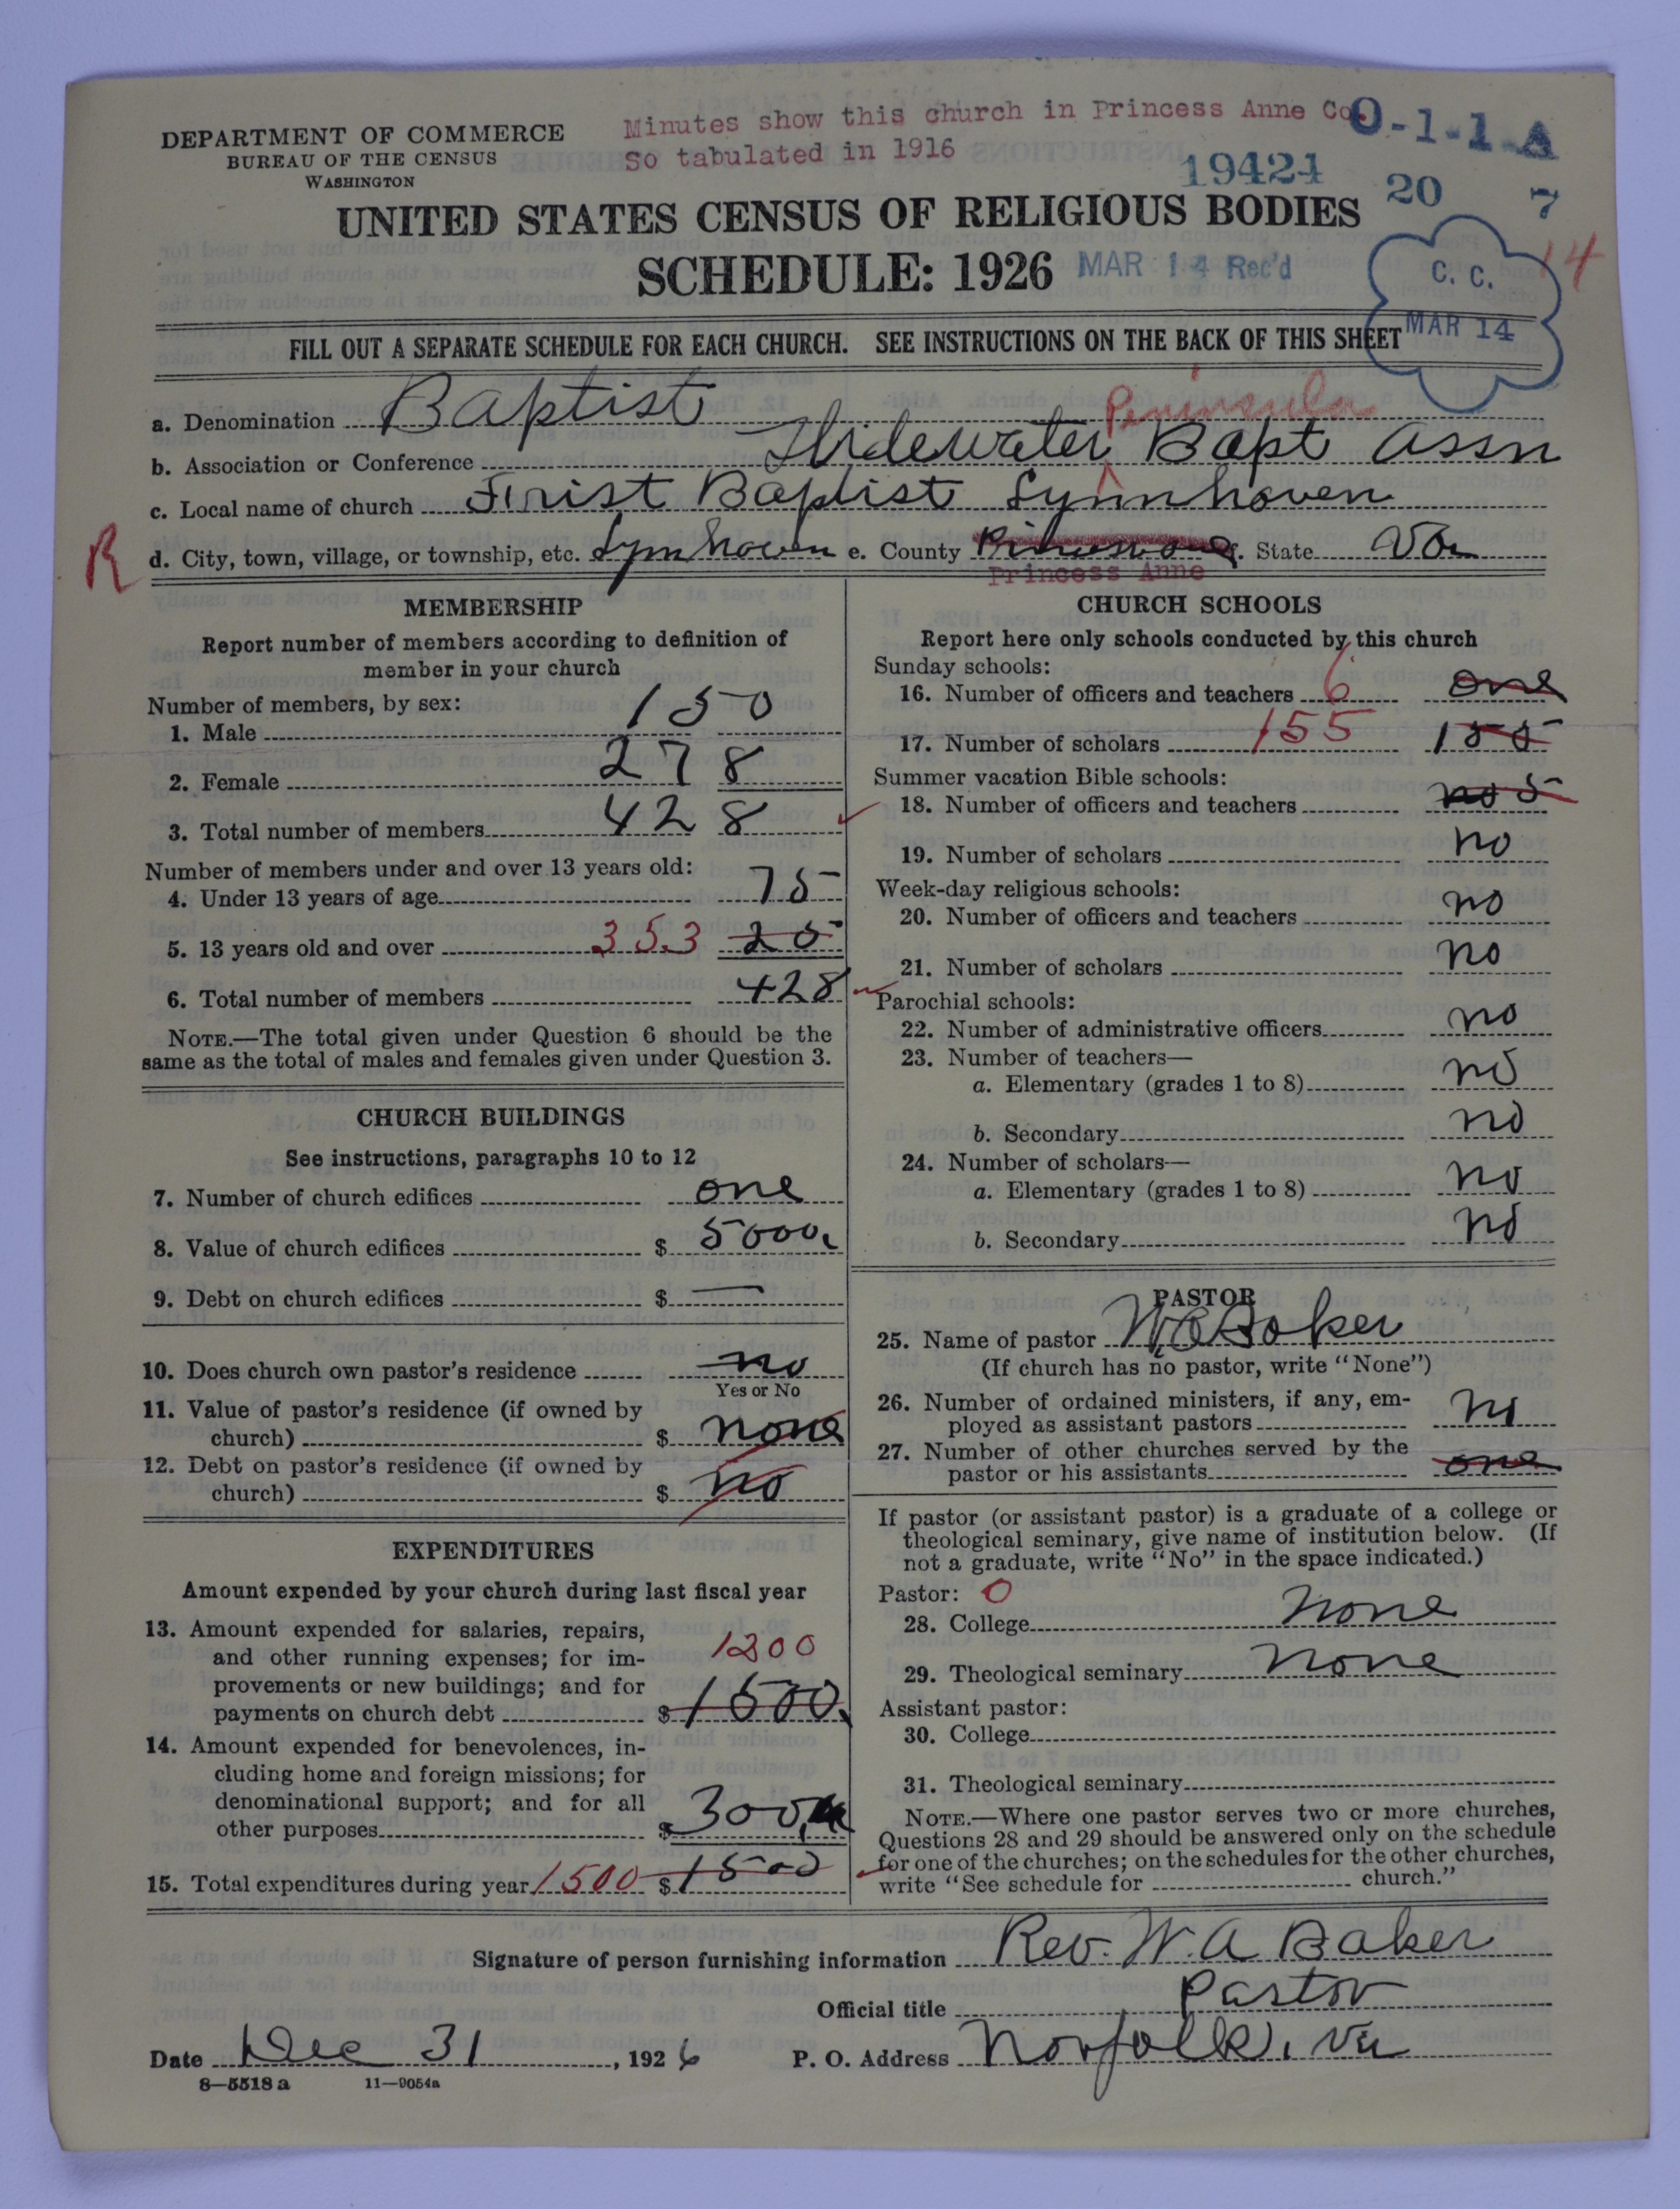 Minutes show this church in Princess Anne Co.
So tabulated in 1916
0-1-1 A
19424
20 7
14
DEPARTMENT OF COMMERCE
BUREAU OF THE CENSUS
WASHINGTON
UNITED STATES CENSUS OF RELIGIOUS BODIES
SCHEDULE: 1926
MAR 14 Rec'd
C. C.
MAR 14
FILL OUT A SEPARATE SCHEDULE FOR EACH CHURCH. SEE INSTRUCTIONS ON THE BACK OF THIS SHEET
a. Denomination Baptist
Peninsula
b. Association or Conference Thidewater Bapt Assn
c. Local name of church First Baptist Lynnhaven
R
d. City, town, village, or township, etc. Lynhaven e. County f. State Va
Princess Anne
MEMBERSHIP
Report number of members according to definition of
member in your church
Number of members, by sex:
1. Male 150
2. Female 278
3. Total number of members 428
Number of members under and over 13 years old:
4. Under 13 years of age 75
5. 13 years old and over 353 25
6. Total number of members 428
NOTE.—The total given under Question 6 should be the
same as the total of males and females given under Question 3.
CHURCH BUILDINGS
See instructions, paragraphs 10 to 12
7. Number of church edifices one
8. Value of church edifices $ 5000
9. Debt on church edifices $ —
10. Does church own pastor's residence no
Yes or No
11. Value of pastor's residence (if owned by
church) $ none
12. Debt on pastor's residence (if owned by
church) $ no
EXPENDITURES
Amount expended by your church during last fiscal year
13. Amount expended for salaries, repairs,
and other running expenses; for im-
provements or new buildings; and for
payments on church debt $ 1500.
1200
14. Amount expended for benevolences, in-
cluding home and foreign missions; for
denominational support; and for all
other purposes $ 300
15. Total expenditures during year 1500 $ 1500
CHURCH SCHOOLS
Report here only schools conducted by this church
Sunday schools:
16. Number of officers and teachers 6 one
17. Number of scholars 155 155
Summer vacation Bible schools:
18. Number of officers and teachers no 5
19. Number of scholars no
Week-day religious schools:
20. Number of officers and teachers no
21. Number of scholars no
Parochial schools:
22. Number of administrative officers no
23. Number of teachers—
a. Elementary (grades 1 to 8) no
b. Secondary no
24. Number of scholars—
a. Elementary (grades 1 to 8) no
b. Secondary no
PASTOR
25. Name of pastor Baker
(If church has no pastor, write "None")
26. Number of ordained ministers, if any, em-
ployed as assistant pastors no
27. Number of other churches served by the
pastor or his assistants one
If pastor (or assistant pastor) is a graduate of a college or
theological seminary, give name of institution below. (If
not a graduate, write "No" in the space indicated.)
Pastor: 0
28. College none
29. Theological seminary none
Assistant pastor:
30. College
31. Theological seminary
NOTE.—Where one pastor serves two or more churches,
Questions 28 and 29 should be answered only on the schedule
for one of the churches; on the schedules for the other churches,
write "See schedule for church."
Signature of person furnishing information Rev. W. A Baker
Official title Pastor
Date Dec 31, 1926 P. O. Address Norfolk, Va
8—5518 a 11—9054a